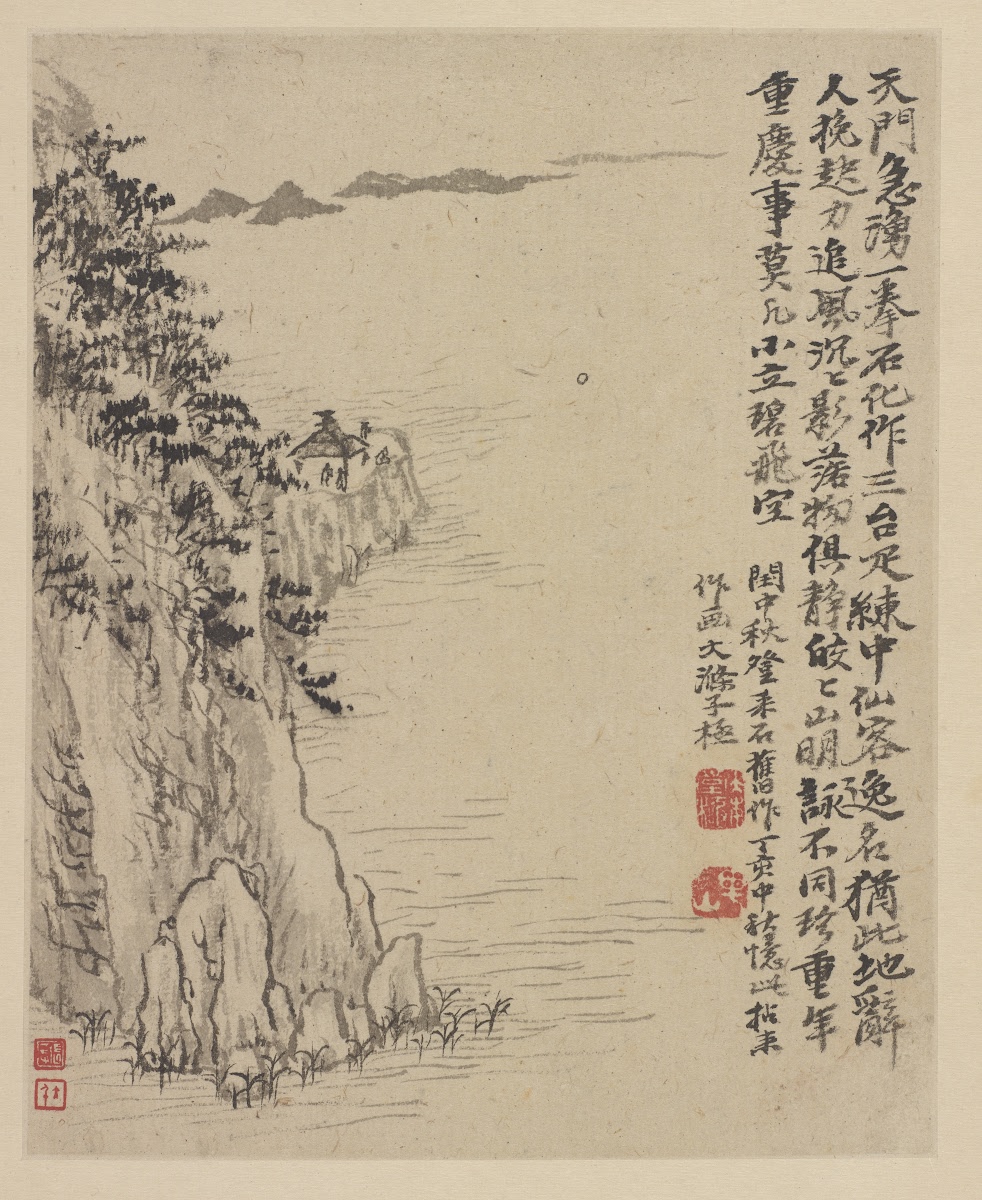 天門急湧一拳石化作三台足練中仙客逸名猶此地辭
人挽起力追風沉〻影落物俱靜皎〻山明詠不同珍重年
重慶事莫凡小立碧飛空
閏中秋登采石舊作丁亥中秋憶此拈来
作画大滌子極